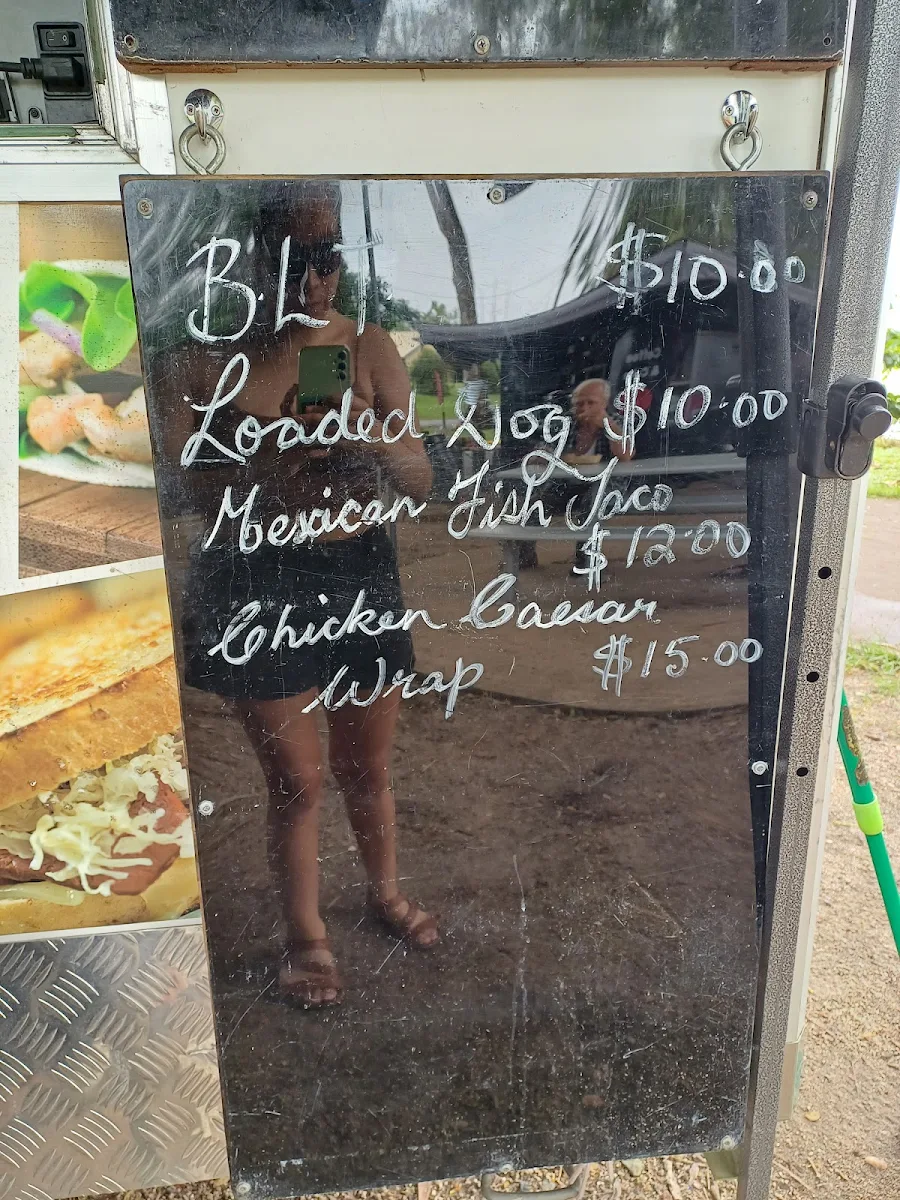 BLT $10.00
Loaded Dog $10.00
Mexican Fish Taco
$12.00
Chicken Caesar
Wrap $15.00